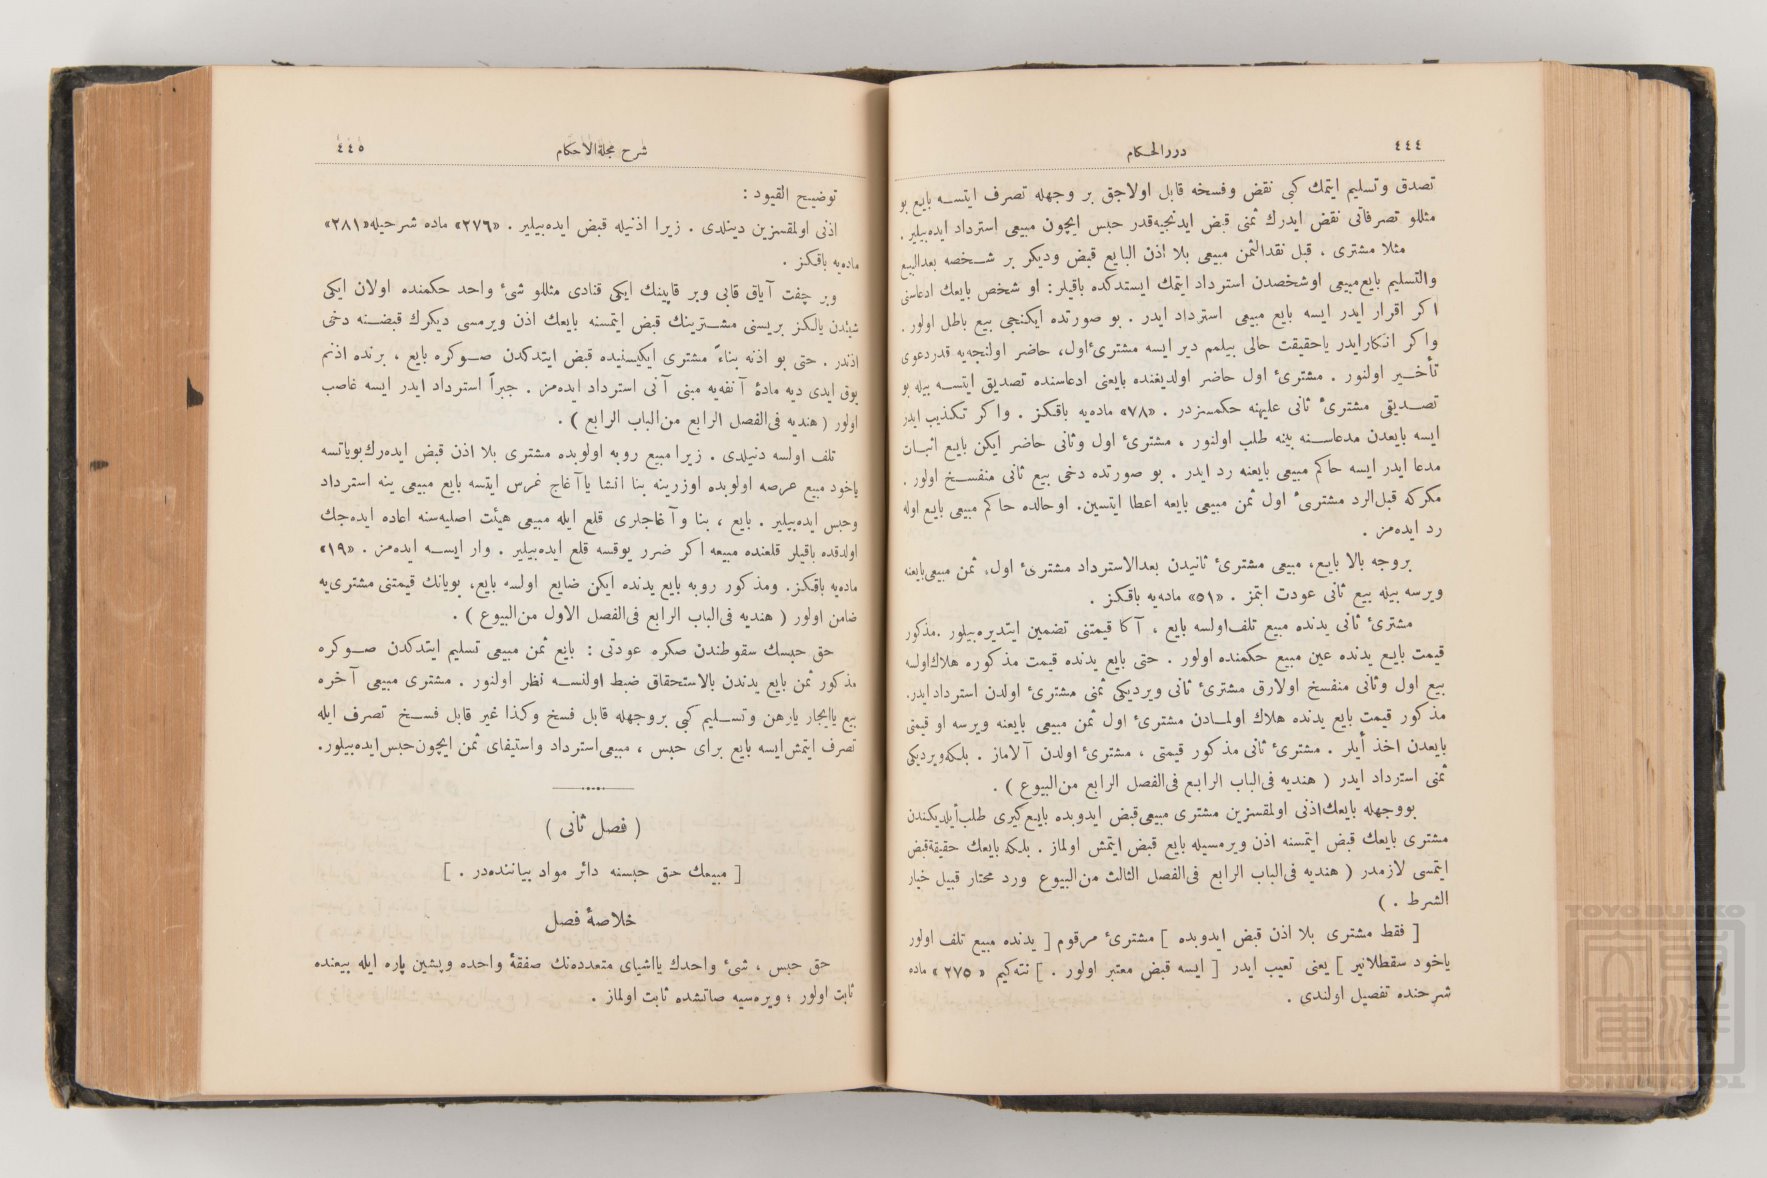 ٤٤٤
درر الحكام
تصدق وتسليم ايتمك كبى نقض وفسخه قابل اولاجق بر وجهله تصرف ايتسه بايع بو
مثللو تصرفاتى نقض ايدرك ثمنى قبض ايدنجيه‌قدر حبس ايچون مبيعى استرداد ايده‌بيلير .
مثلا مشترى ، قبل نقدالثمن مبيعى بلا اذن البايع قبض وديكر بر شخصه بعدالبيع
والتسليم بايع مبيعى اوشخصدن استرداد ايتمك ايستدكده باقيلر: او شخص بايعك ادعاسنى
اكر اقرار ايدر ايسه بايع مبيعى استرداد ايدر . بو صورتده ايكنجى بيع باطل اولور .
واكر انكارايدر ياحقيقت حالى بيلمم دير ايسه مشترىٔ اول، حاضر اولنجه‌يه قدر دعوى
تأخير اولنور . مشترىٔ اول حاضر اولديغنده بايعنى ادعاسنده تصديق ايتسه بيله بو
تصديقى مشترىٔ ثانى عليهنه حكمسزدر . «٧٨» ماده‌يه باقكز . واكر تكذيب ايدر
ايسه بايعدن مدعاسنه بينه طلب اولنور ، مشترىٔ اول وثانى حاضر ايكن بايع اثبات
مدعا ايدر ايسه حاكم مبيعى بايعنه رد ايدر . بو صورتده دخى بيع ثانى منفسخ اولور .
مكركه قبل‌الرد مشترىٔ اول ثمن مبيعى بايعه اعطا ايتسين. اوحالده حاكم مبيعى بايع اوله
رد ايده‌مز .
بروجه بالا بايع، مبيعى مشترىٔ ثانيدن بعدالاسترداد مشترىٔ اول، ثمن مبيعى‌بايعنه
ويرسه بيله بيع ثانى عودت ايتمز . «٥١» ماده‌يه باقكز .
مشترىٔ ثانى يدنده مبيع تلف‌اولسه بايع ، آكا قيمتنى تضمين ايتديره‌بيلور .مذكور
قيمت بايع يدنده عين مبيع حكمنده اولور . حتى بايع يدنده قيمت مذكوره هلاك‌اولسه
بيع اول وثانى منفسخ اولارق مشترىٔ ثانى ويرديكى ثمنى مشترىٔ اولدن استرداد ايدر.
مذكور قيمت بايع يدنده هلاك اولمادن مشترىٔ اول ثمن مبيعى بايعنه ويرسه او قيمتى
بايعدن اخذ أيلر . مشترىٔ ثانى مذكور قيمتى ، مشترىٔ اولدن آلاماز . بلكه‌ويرديكى
ثمنى استرداد ايدر ( هنديه فى‌الباب الرابع فى‌الفصل الرابع من‌البيوع ) .
بووجهله بايعك‌اذنى اولمقسزين مشترى مبيعى‌قبض ايدوبده بايع‌كيرى طلب‌أيلديكندن
مشترى بايعك قبض ايتمسنه اذن ويرمسيله بايع قبض ايتمش اولماز . بلكه بايعك حقيقةقبض
ايتمسى لازمدر ( هنديه فى‌الباب الرابع فى‌الفصل الثالث من‌البيوع ورد محتار قبيل خيار
الشرط . )
[ فقط مشترى بلا اذن قبض ايدوبده ] مشترىٔ مرقوم [ يدنده مبيع تلف اولور
ياخود سقطلانير ] يعنى تعيب ايدر [ ايسه قبض معتبر اولور . ] نته‌كيم « ٢٧٥ » ماده
شرحنده تفصيل اولندى .
شرح مجلة الاحكام
٤٤٥
توضيح القيود :
اذنى اولمقسزين دينلدى . زيرا اذنيله قبض ايده‌بيلير . «٢٧٦» ماده شرحيله«٢٨١»
ماده‌يه باقكز .
وبر چفت آياق قابى وبر قاپينك ايكى قنادى مثللو شىٔ واحد حكمنده اولان ايكى
شيئدن يالكز بريسنى مشترينك قبض ايتمسنه بايعك اذن ويرمسى ديكرك قبضنه دخى
اذندر . حتى بو اذنه بناءً مشترى ايكيسنيده قبض ايتدكدن صوكره بايع ، برنده اذنم
يوق ايدى ديه مادهٔ آنفه‌يه مبنى آنى استرداد ايده‌مز . جبراً استرداد ايدر ايسه غاصب
اولور ( هنديه فى‌الفصل الرابع من‌الباب الرابع ) .
تلف اولسه دنيلدى . زيرا مبيع روبه اولوبده مشترى بلا اذن قبض ايده‌رك‌بوياتسه
ياخود مبيع عرصه اولوبده اوزرينه بنا انشا ياآغاج غرس ايتسه بايع مبيعى ينه استرداد
وحبس ايده‌بيلير . بايع ، بنا وآغاجلرى قلع ايله مبيعى هيئت اصليه‌سنه اعاده ايده‌جك
اولدقده باقيلر قلعنده مبيعه اكر ضرر يوقسه قلع ايده‌بيلير . وار ايسه ايده‌مز . «١٩»
ماده‌يه باقكز. ومذكور روبه بايع يدنده ايكن ضايع اولسه بايع، بويانك قيمتنى مشترى‌يه
ضامن اولور ( هنديه فى‌الباب الرابع فى‌الفصل الاول من‌البيوع ) .
حق حبسك سقوطندن صكره عودتى : بايع ثمن مبيعى تسليم ايتدكدن صوكره
مذكور ثمن بايع يدندن بالاستحقاق ضبط اولنسه نظر اولنور . مشترى مبيعى آخره
بيع ياايجار يارهن وتسليم كبى بروجهله قابل فسخ وكذا غير قابل فسخ تصرف ايله
تصرف ايتمش‌ايسه بايع براى حبس ، مبيعى‌استرداد واستيفاى ثمن ايچون‌حبس‌ايده‌بيلور.
( فصل ثانى )
[ مبيعك حق حبسنه دائر مواد بياننده‌در . ]
خلاصهٔ فصل
حق حبس ، شىٔ واحدك يااشياى متعدده‌نك صفقهٔ واحده وپشين پاره ايله بيعنده
ثابت اولور ؛ ويره‌سيه صاتشده ثابت اولماز .